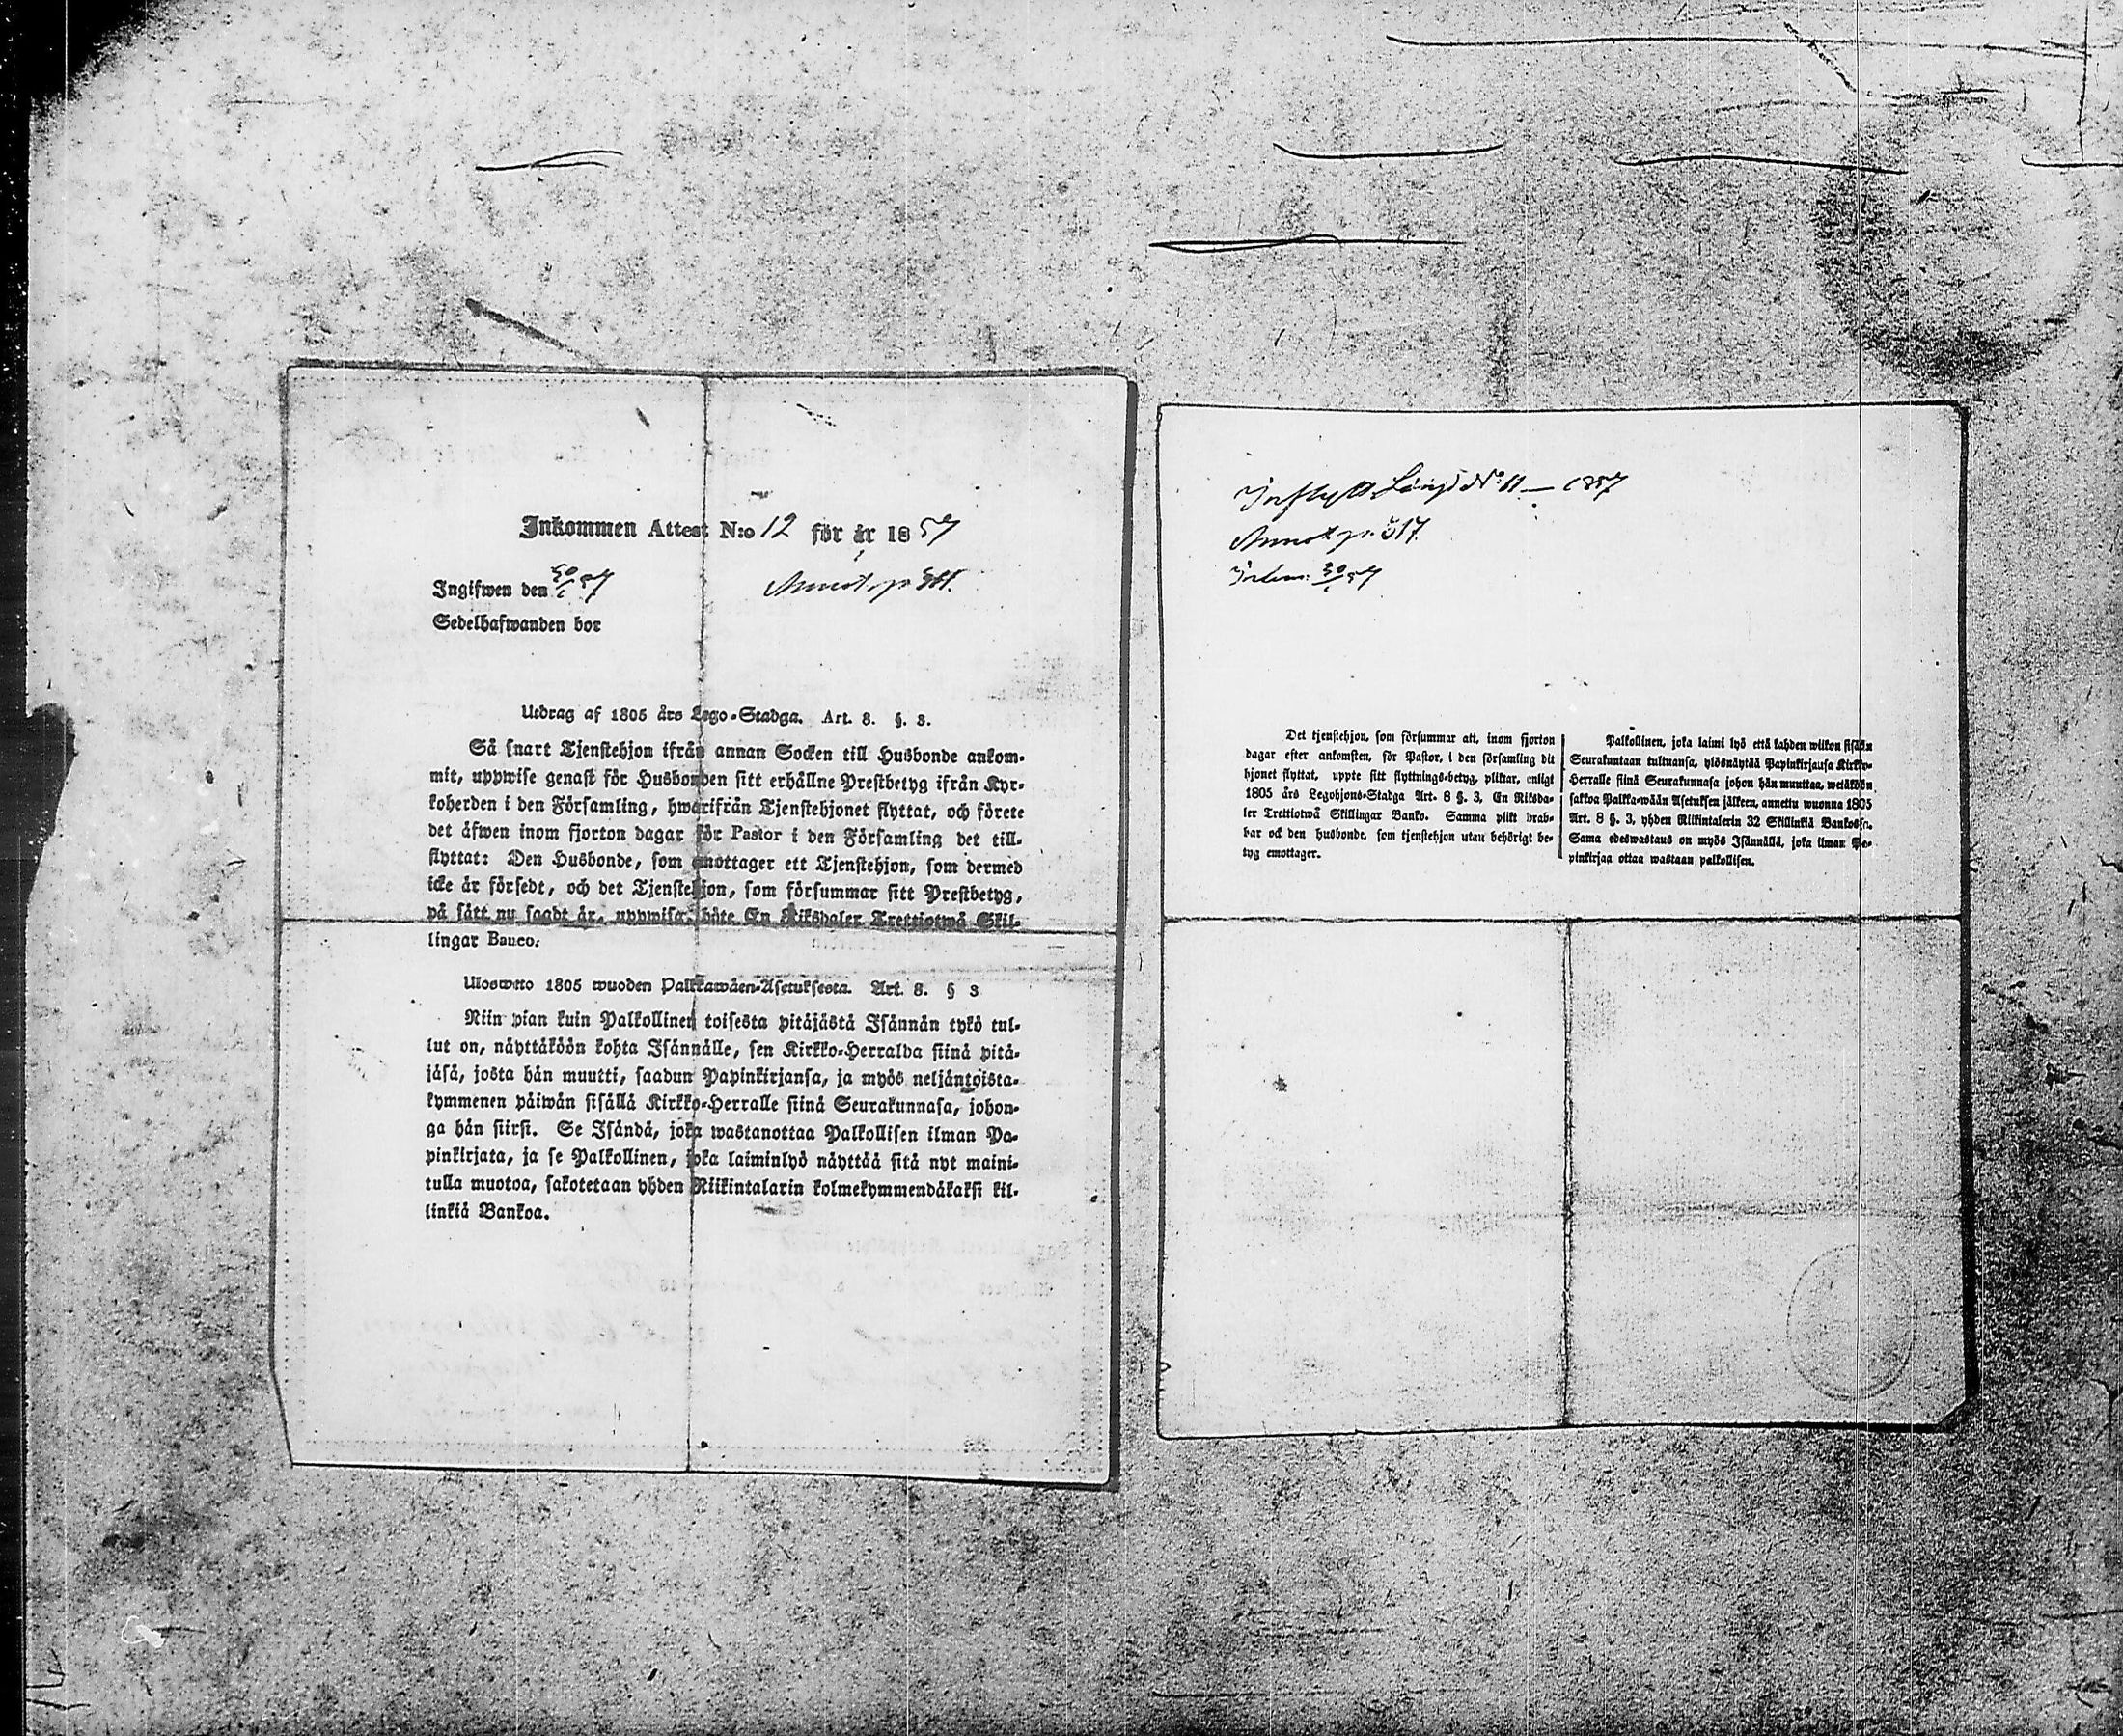 Inkommen Attest N:o 12 för år 1857
Ingifwen den 30/1 57
Sedelhafwanden bor
Utdrag af 1805 års Lego-Stadga. Art. 8. §. 3.
Så snart Tjenstehjon ifrån annan Socken till Husbonde ankom-
mit, uppwise genast för Husbonden sitt erhållne Prestbetyg ifrån Kyr-
koherden i den Församling, hwarifrån Tjenstehjonet flyttat, och förete
det äfwen inom fjorton dagar för Pastor i den Församling det till-
flyttat: Den Husbonde, som emottager ett Tjenstehjon, som dermed
icke är försedt, och det Tjenstehjon, som försummar sitt Prestbetyg,
på sätt nu sagdt är, uppwisa, böte En Riksdaler Trettiotwå Skil-
lingar Banco.
Uloswetto 1805 wuoden Palkkawäen-Asetuksesta. Art. 8. § 3
Niin pian kuin Palkollinen toisesta pitäjästä Isännän tykö tul-
lut on, näyttäköön kohta Isännälle, sen Kirkko-Herralda siinä pitä-
jäsä, josta hän muutti, saadun Papinkirjansa, ja myös neljäntoista-
kymmenen päiwän sisällä Kirkko-Herralle siinä Seurakunnasa, johon-
ga hän siirsi. Se Isändä, joka wastanottaa Palkollisen ilman Pa-
pinkirjata, ja se Palkollinen, joka laiminlyö näyttää sitä nyt maini-
tulla muotoa, sakotetaan yhden Riikintalarin kolmekymmendäkaksi kil-
linkiä Bankoa.
Inflytt. Längd N:o 11 — 1857
Annot. p. 317.
Inkom. 30/1 57
Det tjenstehjon, som försummar att, inom fjorton
dagar efter ankomsten, för Pastor, i den församling dit
hjonet flyttat, uppte sitt flyttnings-betyg, pliktar, enligt
1805 års Legohjons-Stadga Art. 8 §. 3, En Riksda-
ler Trettiotwå Skillingar Banko. Samma plikt drab-
bar ock den husbonde, som tjenstehjon utan behörigt be-
tyg emottager.
Palkollinen, joka laimi lyö että kahden wiikon sisään
Seurakuntaan tultuansa, ylösnäytää Papinkirjausa Kirkko-
Herralle siinä Seurakunnasa johon hän muuttaa, wetäköön
sakkoa Palkka-wään Asetuksen jälkeen, annettu wuonna 1805
Art. 8 §. 3, yhden Riikintalerin 32 Skillinkiä Bankossa.
Sama edeswastaus on myös Isännällä, joka ilman Pa-
pinkirjaa ottaa wastaan palkollisen.